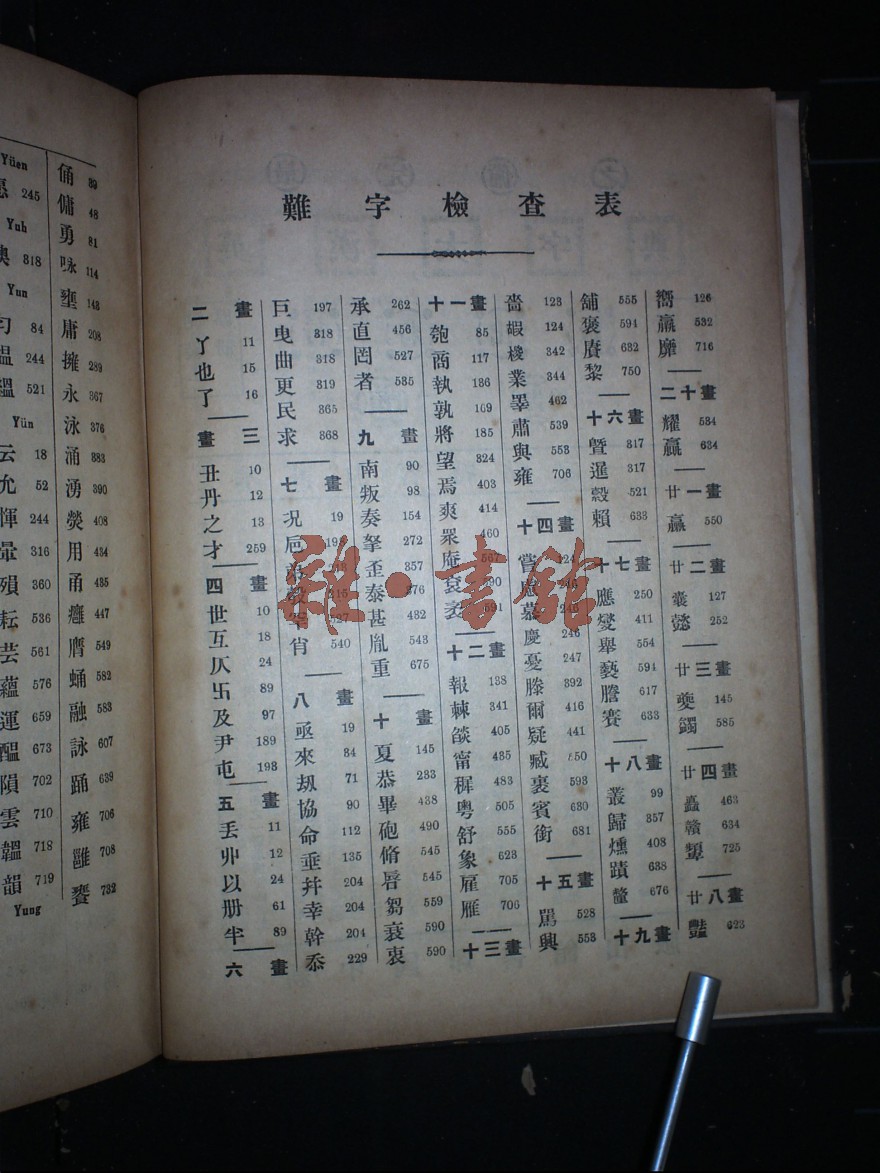 Yüen
245
Yuh
818
Yun
84
244
521
Yün
云 18
允 52
惲 244
暈 316
殞 360
耘 536
芸 561
蘊 576
運 659
醞 673
隕 702
雲 710
韞 718
韻 719
Yung
俑 89
傭 48
勇 81
咏 114
壅 148
庸 208
擁 289
永 367
泳 376
涌 383
湧 390
熒 408
用 434
甬 435
癰 447
膺 549
蛹 582
融 583
詠 607
踊 639
雍 706
雝 708
饔 732
難字檢查表
二畫
丫 11
也 15
了 16
三畫
丑 10
丹 12
之 13
才 259
四畫
世 10
互 18
仄 24
卐 89
及 97
尹 189
屯 193
五畫
丟 11
丱 12
以 24
册 61
半 89
六畫
巨 197
曳 318
曲 318
更 319
民 365
求 368
七畫
況 19
肖 540
八畫
亟 19
來 34
刼 71
協 90
命 112
垂 135
幷 204
幸 204
幹 204
忝 229
承 262
直 456
罔 527
者 535
九畫
南 90
叛 98
奏 154
拏 272
歪 357
泰 376
甚 432
胤 543
重 675
十畫
夏 145
恭 233
畢 438
砲 490
脩 545
唇 545
芻 559
衰 590
衷 590
十一畫
匏 85
商 117
執 136
孰 169
將 185
望 324
焉 403
爽 414
眾 460
庵 567
袞 590
十二畫
報 138
棘 341
焰 405
甯 435
稺 483
粵 505
舒 555
象 623
雇 705
雁 706
十三畫
嗇 123
嘏 124
椶 342
業 344
睪 462
肅 539
與 553
雍 706
十四畫
嘗 124
慕 246
慶 246
憂 247
滕 392
爾 416
疑 441
臧 550
裹 593
賓 630
銜 681
十五畫
罵 528
興 553
舖 555
褒 594
賡 632
黎 750
十六畫
曁 317
暹 317
縠 521
賴 633
十七畫
應 250
燮 411
舉 554
褻 594
謄 617
賽 633
十八畫
叢 99
歸 357
燻 408
蹟 638
釐 676
十九畫
嚮 126
羸 532
靡 716
二十畫
耀 534
贏 634
廿一畫
臝 550
廿二畫
囊 127
懿 252
廿三畫
夔 145
蠲 585
廿四畫
矗 463
贛 634
顰 725
廿八畫
豔 623
雜·書館